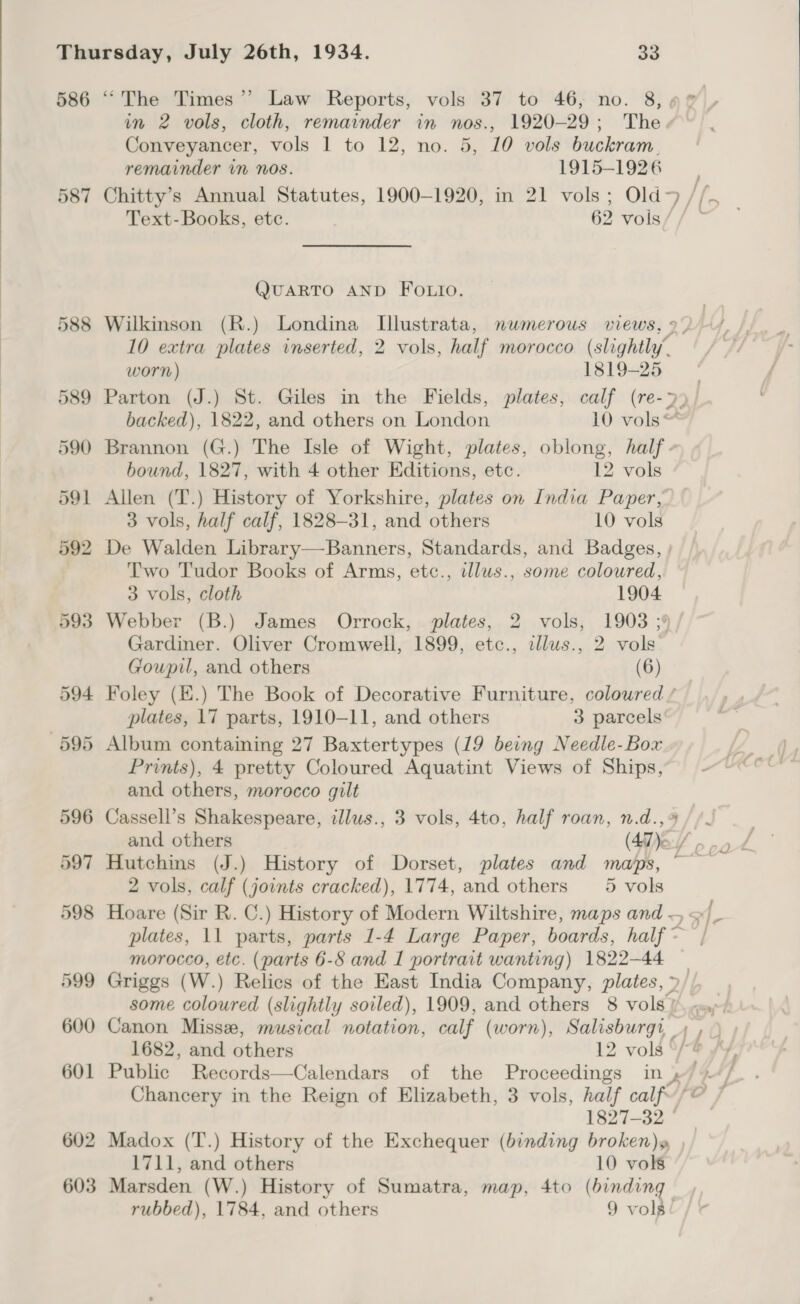 Thursday, July 26th, 1934. 33
586 “The Times” Law Reports, vols 37 to 46, no. 8,
in 2 vols, cloth, remainder in nos., 1920–29; The
Conveyancer, vols 1 to 12, no. 5, 10 vols buckram
remainder in nos. 1915–1926
587 Chitty’s Annual Statutes, 1900–1920, in 21 vols; Old
Text-Books, etc. 62 vols
QUARTO AND FOLIO.
588 Wilkinson (R.) Londina Illustrata, numerous views,
10 extra plates inserted, 2 vols, half morocco (slightly
worn) 1819–25
589 Parton (J.) St. Giles in the Fields, plates, calf (re-
backed), 1822, and others on London 10 vols
590 Brannon (G.) The Isle of Wight, plates, oblong, half
bound, 1827, with 4 other Editions, etc. 12 vols
591 Allen (T.) History of Yorkshire, plates on India Paper,
3 vols, half calf, 1828–31, and others 10 vols
592 De Walden Library—Banners, Standards, and Badges,
Two Tudor Books of Arms, etc., illus., some coloured,
3 vols, cloth 1904
593 Webber (B.) James Orrock, plates, 2 vols, 1903;
Gardiner. Oliver Cromwell, 1899, etc., illus., 2 vols
Goupil, and others (6)
594 Foley (E.) The Book of Decorative Furniture, coloured
plates, 17 parts, 1910–11, and others 3 parcels
595 Album containing 27 Baxtertypes (19 being Needle-Box
Prints), 4 pretty Coloured Aquatint Views of Ships,
and others, morocco gilt
596 Cassell’s Shakespeare, illus., 3 vols, 4to, half roan, n.d.,
and others (47)
597 Hutchins (J.) History of Dorset, plates and maps,
2 vols, calf (joints cracked), 1774, and others 5 vols
598 Hoare (Sir R. C.) History of Modern Wiltshire, maps and
plates, 11 parts, parts 1-4 Large Paper, boards, half
morocco, etc. (parts 6-8 and 1 portrait wanting) 1822–44
599 Griggs (W.) Relics of the East India Company, plates,
some coloured (slightly soiled), 1909, and others 8 vols
600 Canon Missæ, musical notation, calf (worn), Salisburgi
1682, and others 12 vols
601 Public Records—Calendars of the Proceedings in
Chancery in the Reign of Elizabeth, 3 vols, half calf
1827–32
602 Madox (T.) History of the Exchequer (binding broken),
1711, and others 10 vols
603 Marsden (W.) History of Sumatra, map, 4to (binding
rubbed), 1784, and others 9 vols